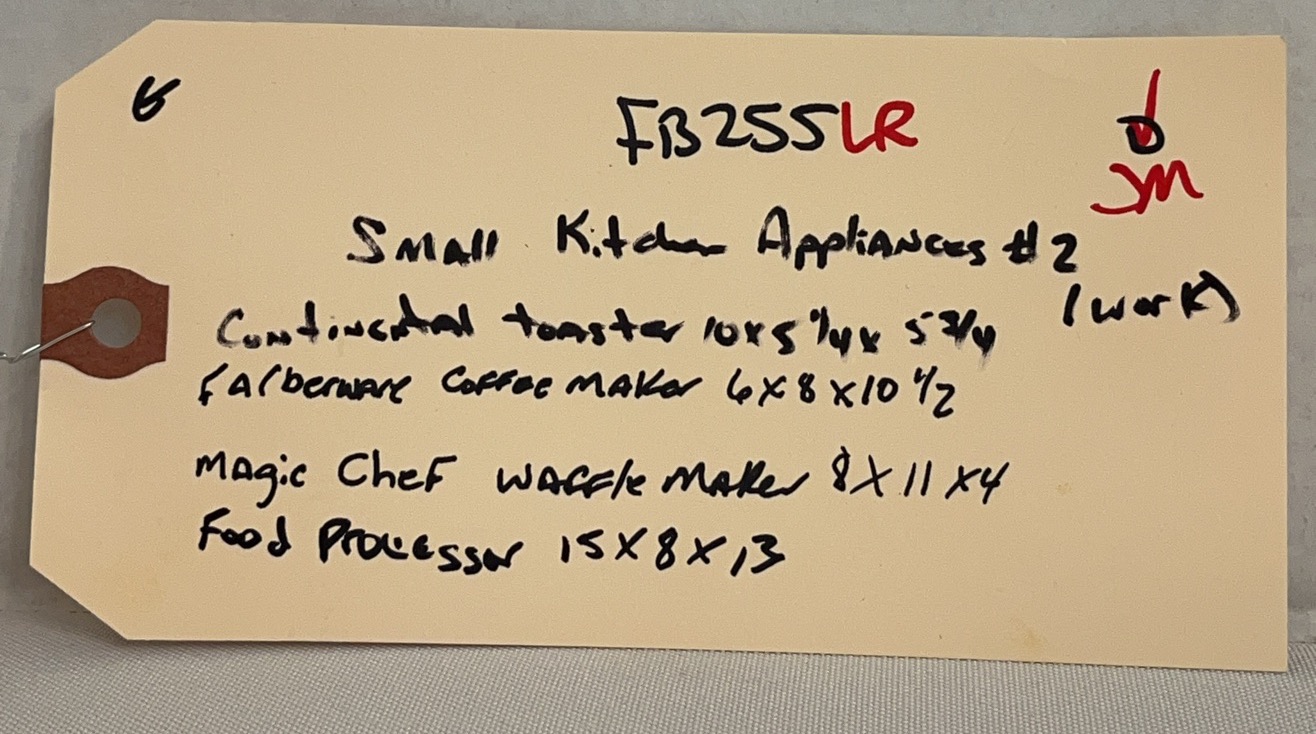 G
FB255LR
D
JM
Small Kitchen Appliances #2
(work)
Continental toaster 10 x 5 1/4 x 5 3/4
Farberware Coffee Maker 6 x 8 x 10 1/2
Magic Chef Waffle Maker 8 x 11 x 4
Food Processor 15 x 8 x 13